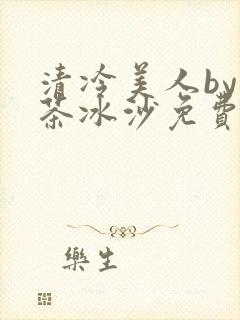 清冷美人by
茶冰沙免費
樂生